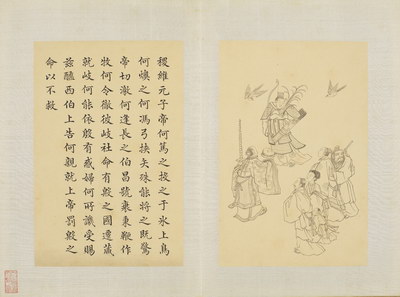 稷維元子帝何篤之投之于氷上鳥
何燠之何馮弓挾矢殊能將之既驚
帝切激何逢長之伯昌號衰秉鞭作
牧何令徹彼岐社命有殷之國遷藏
就岐何能依殷有惑婦何所譏受賜
茲醢西伯上告何親就上帝罰殷之
命以不救